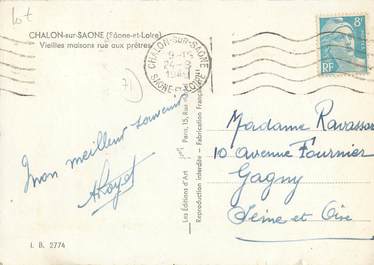 lot
CHALON-sur-SAONE (Saône-et-Loire)
Vieilles maisons rue aux prêtres
71
CHALON-SUR-SAONE
24-9
1949
SAONE-ET-LOIRE
8F
RF
Mon meilleur souvenir
Les Editions d'Art
Paris, 15, Rue
Reproduction interdite - Fabrication Française
Madame Ravassor
10 Avenue Fournier
Gagny
Seine et Oise
I. B. 2774